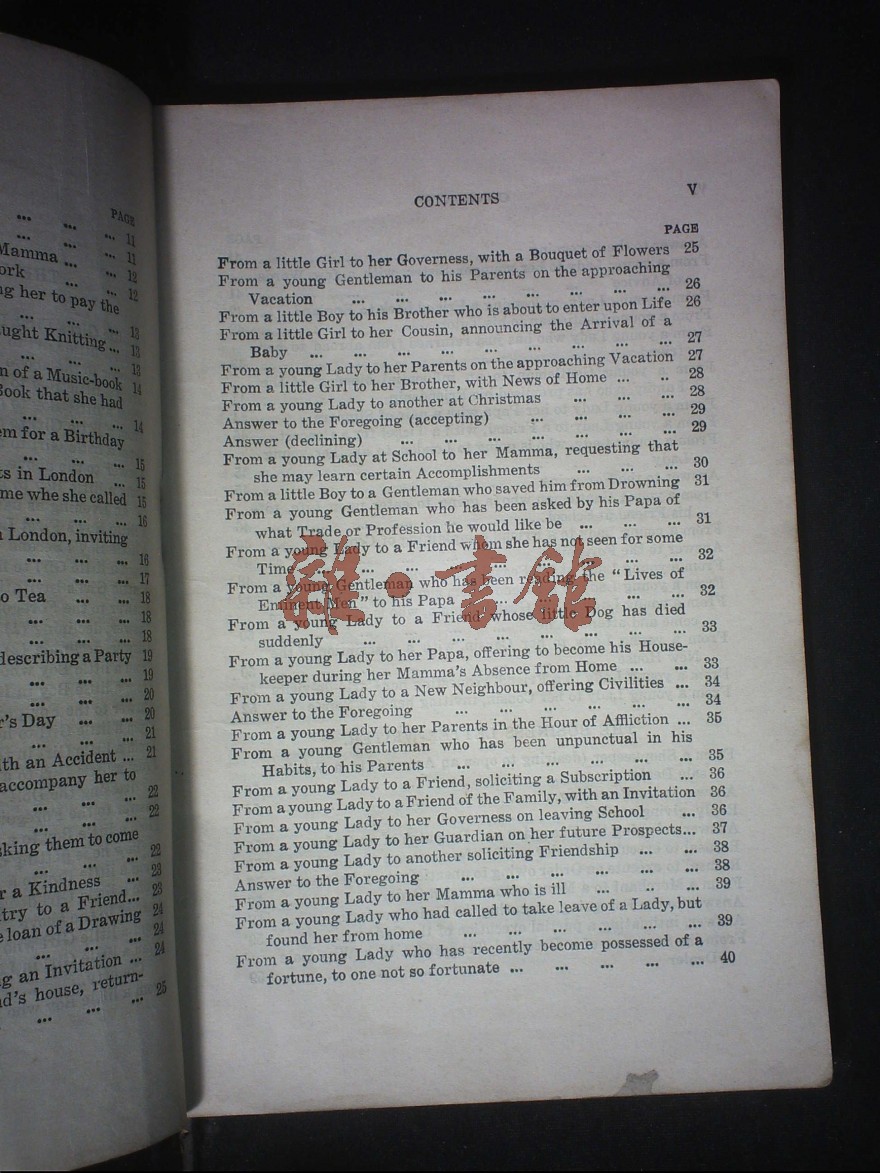 PAGE
... ... ... 11
Mamma ... ... 11
ork ... ... 12
ng her to pay the 12
... ... ... 13
ught Knitting ... 13
... ... ... 13
n of a Music-book 14
Book that she had
... ... ... 14
em for a Birthday
... ... ... 15
ts in London ... 15
me whe she called 15
... ... ... 16
n London, inviting
... ... ... 16
... ... ... 17
to Tea ... ... 18
... ... ... 18
... ... ... 18
describing a Party 19
... ... ... 19
... ... ... 20
r's Day ... ... 20
... ... ... 21
ith an Accident ... 21
accompany her to
... ... ... 22
... ... ... 22
sking them to come
... ... ... 22
r a Kindness ... 23
try to a Friend... 23
e loan of a Drawing 24
... ... ... 24
ng an Invitation ... 24
nd's house, return-
... ... ... 25
CONTENTS V
PAGE
From a little Girl to her Governess, with a Bouquet of Flowers 25
From a young Gentleman to his Parents on the approaching
Vacation ... ... ... ... ... ... ... ... 26
From a little Boy to his Brother who is about to enter upon Life 26
From a little Girl to her Cousin, announcing the Arrival of a
Baby ... ... ... ... ... ... ... ... ... 27
From a young Lady to her Parents on the approaching Vacation 27
From a little Girl to her Brother, with News of Home ... .. 28
From a young Lady to another at Christmas ... ... ... 28
Answer to the Foregoing (accepting) ... ... ... ... 29
Answer (declining) ... ... ... ... ... ... ... 29
From a young Lady at School to her Mamma, requesting that
she may learn certain Accomplishments ... ... ... 30
From a little Boy to a Gentleman who saved him from Drowning 31
From a young Gentleman who has been asked by his Papa of
what Trade or Profession he would like be ... ... ... 31
From a young Lady to a Friend whom she has not seen for some
Time ... ... ... ... ... ... ... ... ... 32
From a young Gentleman who has been reading the "Lives of
Eminent Men" to his Papa ... ... ... ... ... 32
From a young Lady to a Friend whose little Dog has died
suddenly ... ... ... ... ... ... ... ... 33
From a young Lady to her Papa, offering to become his House-
keeper during her Mamma's Absence from Home ... ... 33
From a young Lady to a New Neighbour, offering Civilities ... 34
Answer to the Foregoing ... ... ... ... ... ... 34
From a young Lady to her Parents in the Hour of Affliction ... 35
From a young Gentleman who has been unpunctual in his
Habits, to his Parents ... ... ... ... ... ... 35
From a young Lady to a Friend, soliciting a Subscription ... 36
From a young Lady to a Friend of the Family, with an Invitation 36
From a young Lady to her Governess on leaving School ... 36
From a young Lady to her Guardian on her future Prospects... 37
From a young Lady to another soliciting Friendship ... ... 38
Answer to the Foregoing ... ... ... ... ... ... 38
From a young Lady to her Mamma who is ill ... .. ... 39
From a young Lady who had called to take leave of a Lady, but
found her from home ... ... ... ... ... ... 39
From a young Lady who has recently become possessed of a
fortune, to one not so fortunate ... ... ... ... ... 40
雜·書館